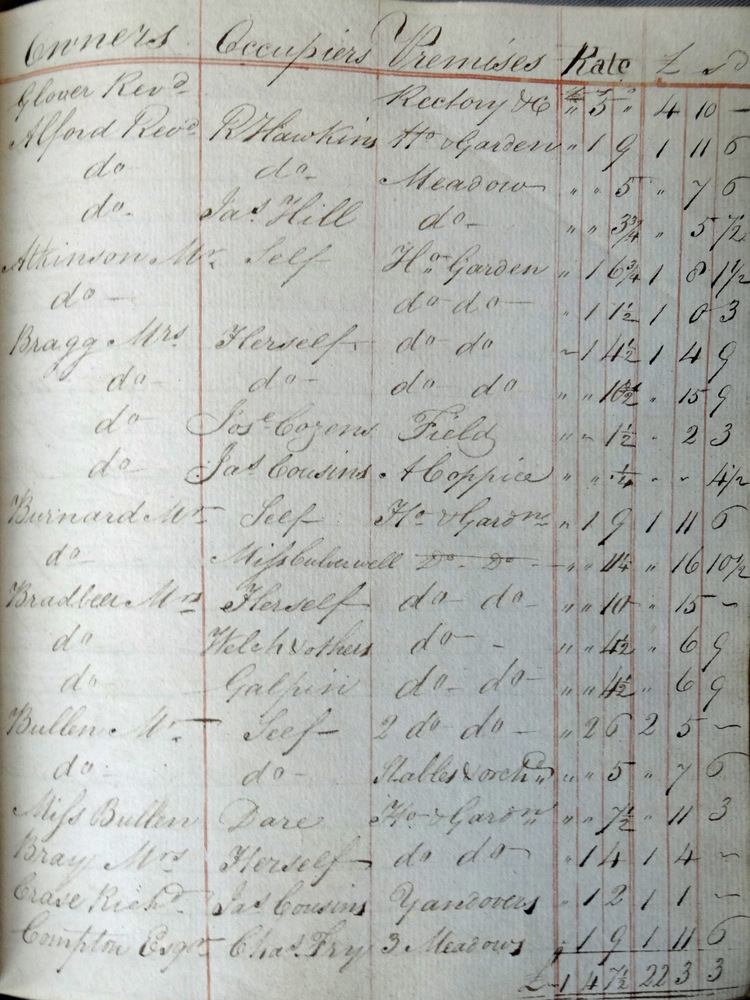 Owners Occupiers Premises Rate £ s d
Glover Revd Rectory &c " 5 " 4 10 –
Alford Revd R Hawkins Ho & Garden " 1 9 1 11 6
do do Meadow " " 5 " 7 6
do Jas Hill do " " 3¾ " 5 7½
Atkinson Mr Self Ho Garden " 1 6¾ 1 8 1½
do do do " 1 1½ 1 0 3
Bragg Mrs Herself do do " 1 4½ 1 4 9
do do do do " " 10½ " 15 9
do Jose Cozens Field " " 1½ " 2 3
do Jas Cousins A Coppice " " ¼ " " 4½
Burnard Mr Self Ho & Gardn " 1 9 1 11 6
do Miss Culverwell Do Do " " 11¼ " 16 10½
Bradbeer Mrs Herself do do " " 10 " 15 –
do Welch & others do – " " 4½ " 6 9
do Galpin do do " " 4½ " 6 9
Bullen Mr Self 2 do do " 2 6 2 5 –
do do Stables & orchd " " 5 " 7 6
Miss Bullen Dare Ho & Gardn " " 7½ " 11 3
Bray Mrs Herself do do " 1 4 1 4 –
Crase Richd Jas Cousins Yandovers " 1 2 1 1 –
Compton Esqr Chas Fry 3 Meadows " 1 9 1 11 6
£ 1 4 7½ 22 3 3